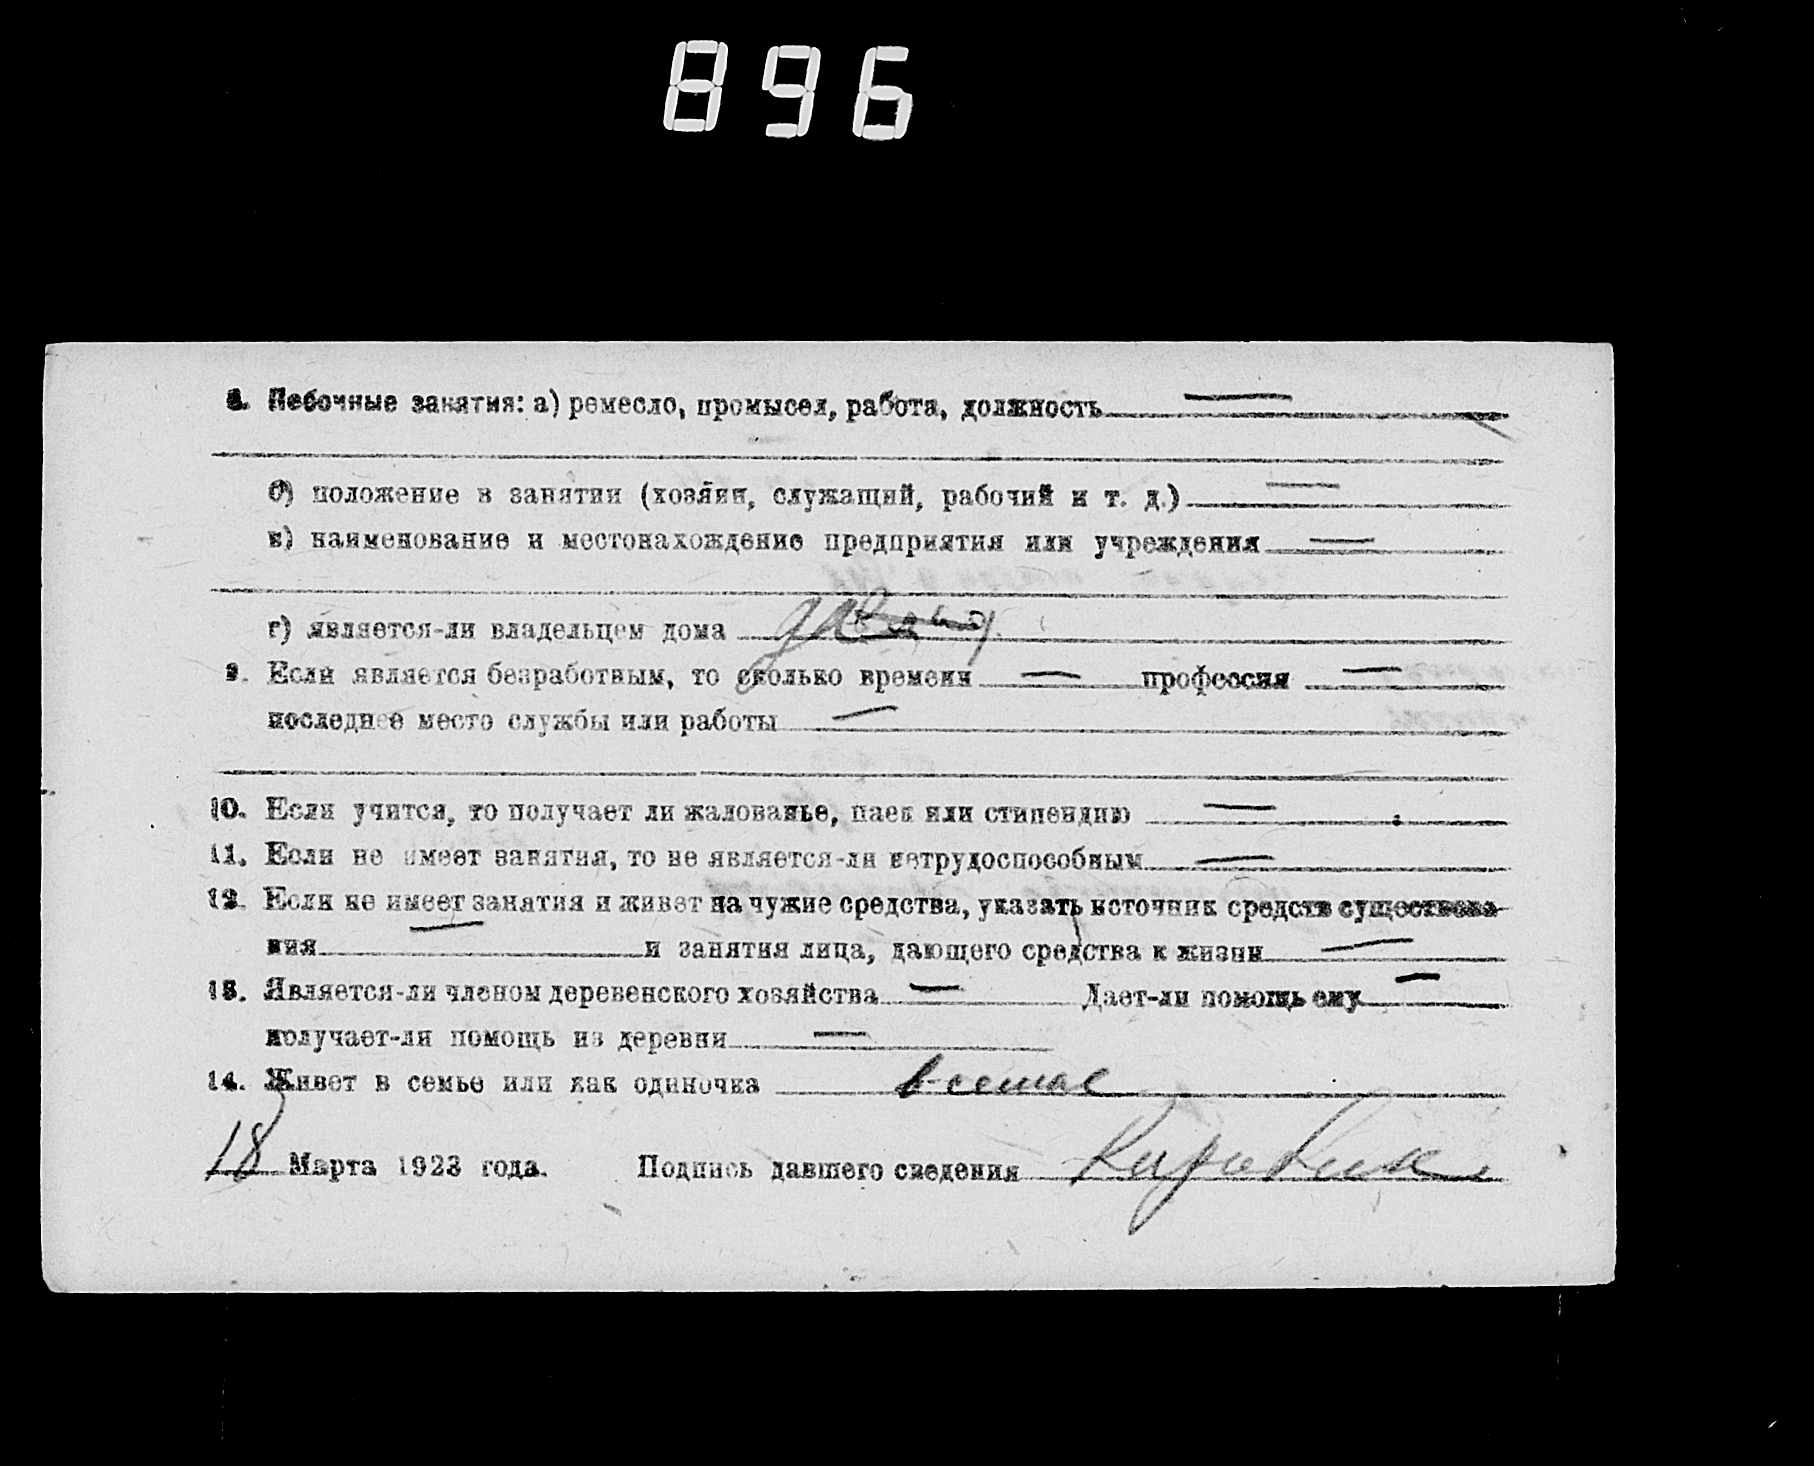 896
8. Побочные занятия: а) ремесло, промысел, работа, должность —
б) положение в занятии (хозяин, служащий, рабочий и т. д.) —
в) наименование и местонахождение предприятия или учреждения —
г) является-ли владельцем дома да
9. Если является безработным, то сколько времени — профессия —
последнее место службы или работы —
10. Если учится, то получает ли жалованье, паек или стипендию —
11. Если не имеет занятия, то не является-ли нетрудоспособным —
12. Если не имеет занятия и живет на чужие средства, указать источник средств существова-
ния — и занятия лица, дающего средства к жизни —
13. Является-ли членом деревенского хозяйства — Дает-ли помощь ему —
получает-ли помощь из деревни —
14. Живет в семье или как одиночка в семье
18 Марта 1923 года. Подпись давшего сведения